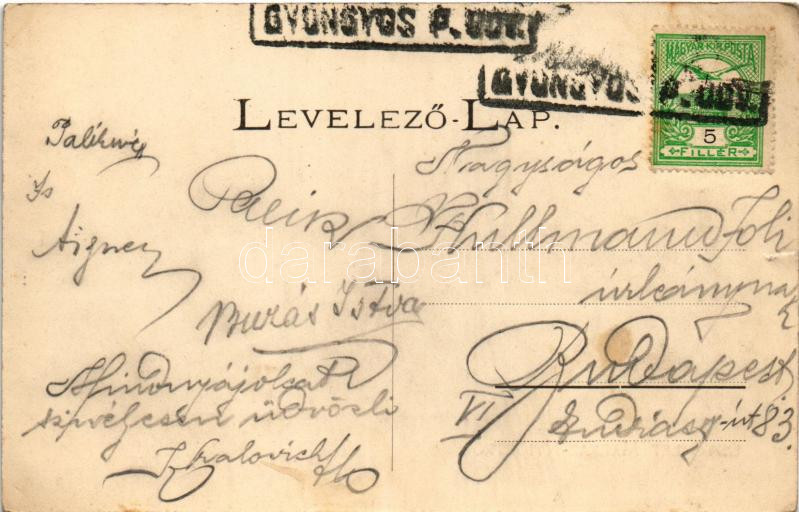 GYÖNGYÖS P.UDV.
GYÖNGYÖS P.UDV.
MAGYAR KIR. POSTA
5
FILLÉR
LEVELEZŐ-LAP.
Is
Aigner
Burás István
Mindnyájokat
szivélyesen üdvözli
Nagyságos
Hullmann Joli
úrleánynak
Budapest
VI Andrássy-út 83.
darabanth